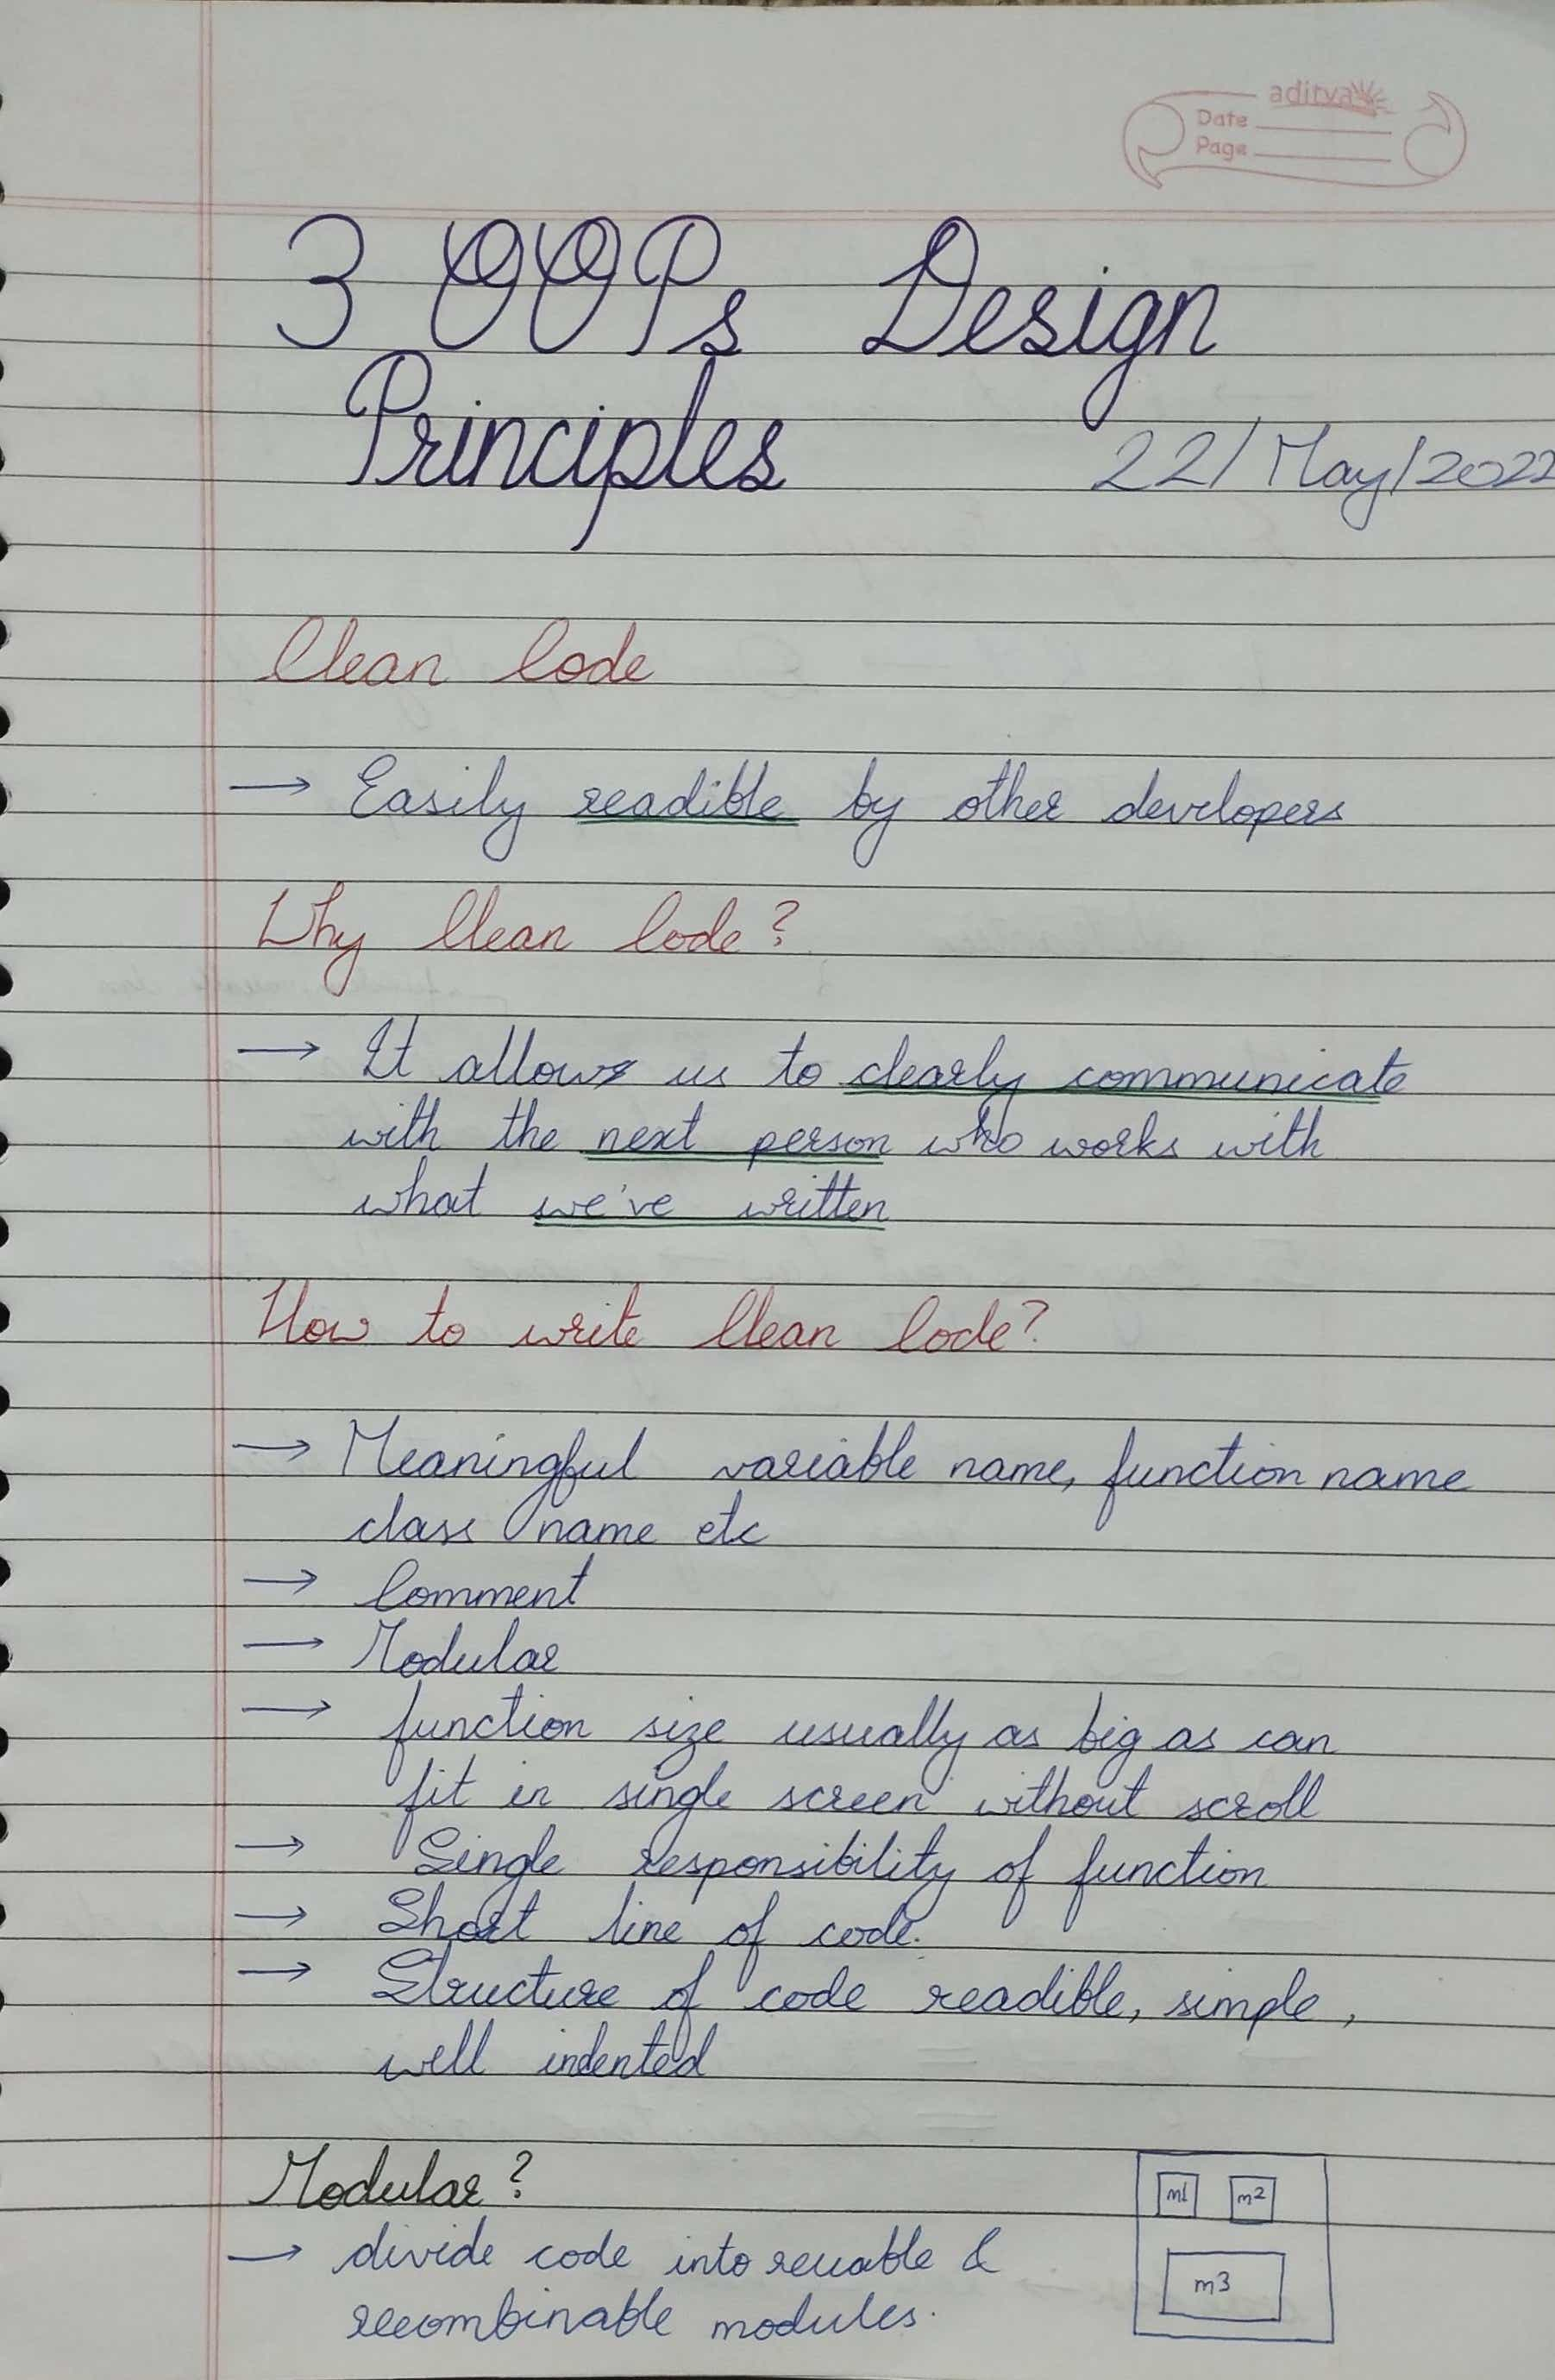 aditya
Date
Page
3 OOPs Design
Principles
22/May/2022
Clean Code
→ Easily readible by other developers
Why Clean Code?
→ It allows us to clearly communicate
with the next person who works with
what we've written
How to write Clean Code?
→ Meaningful variable name, function name
class name etc
→ Comment
→ Modular
→ function size usually as big as can
fit in single screen without scroll
→ Single responsibility of function
→ Short line of code.
→ Structure of code readible, simple,
well indented
Modular?
m1 m2
→ divide code into reuable &
m3
recombinable modules.